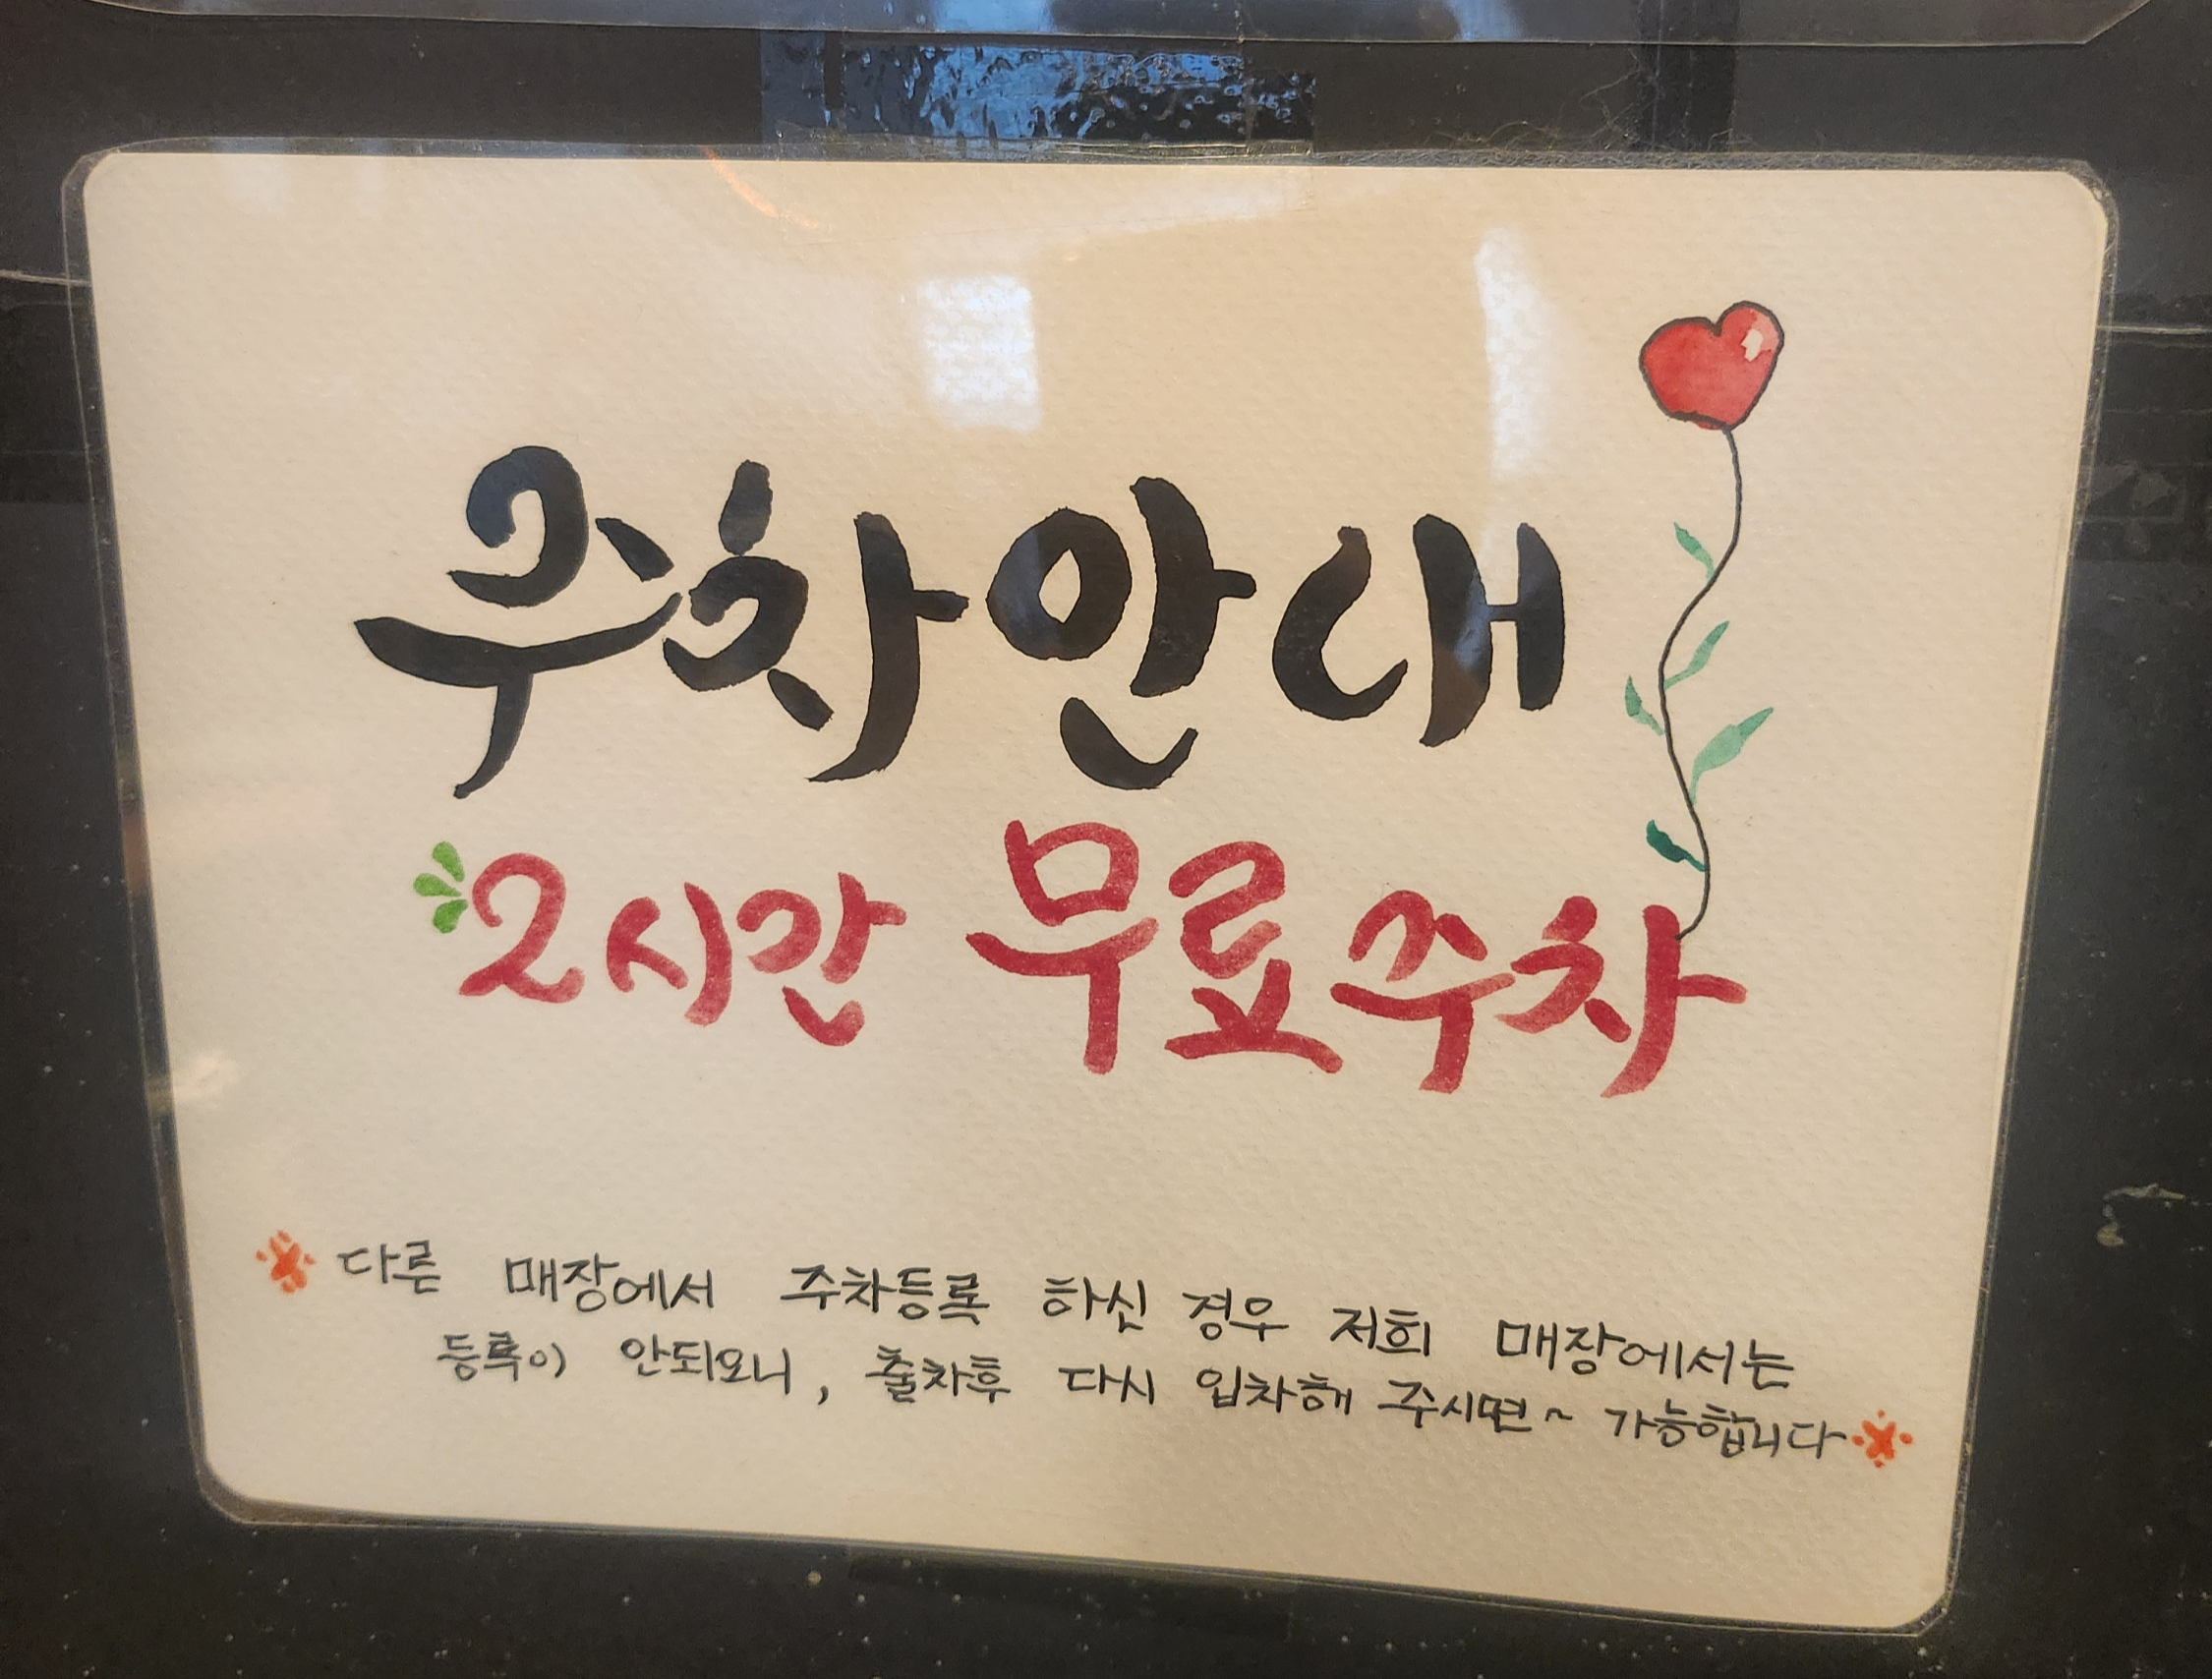 주차안내
2시간 무료주차
다른 매장에서 주차등록 하신 경우 저희 매장에서는
등록이 안되오니, 출차후 다시 입차해 주시면~ 가능합니다